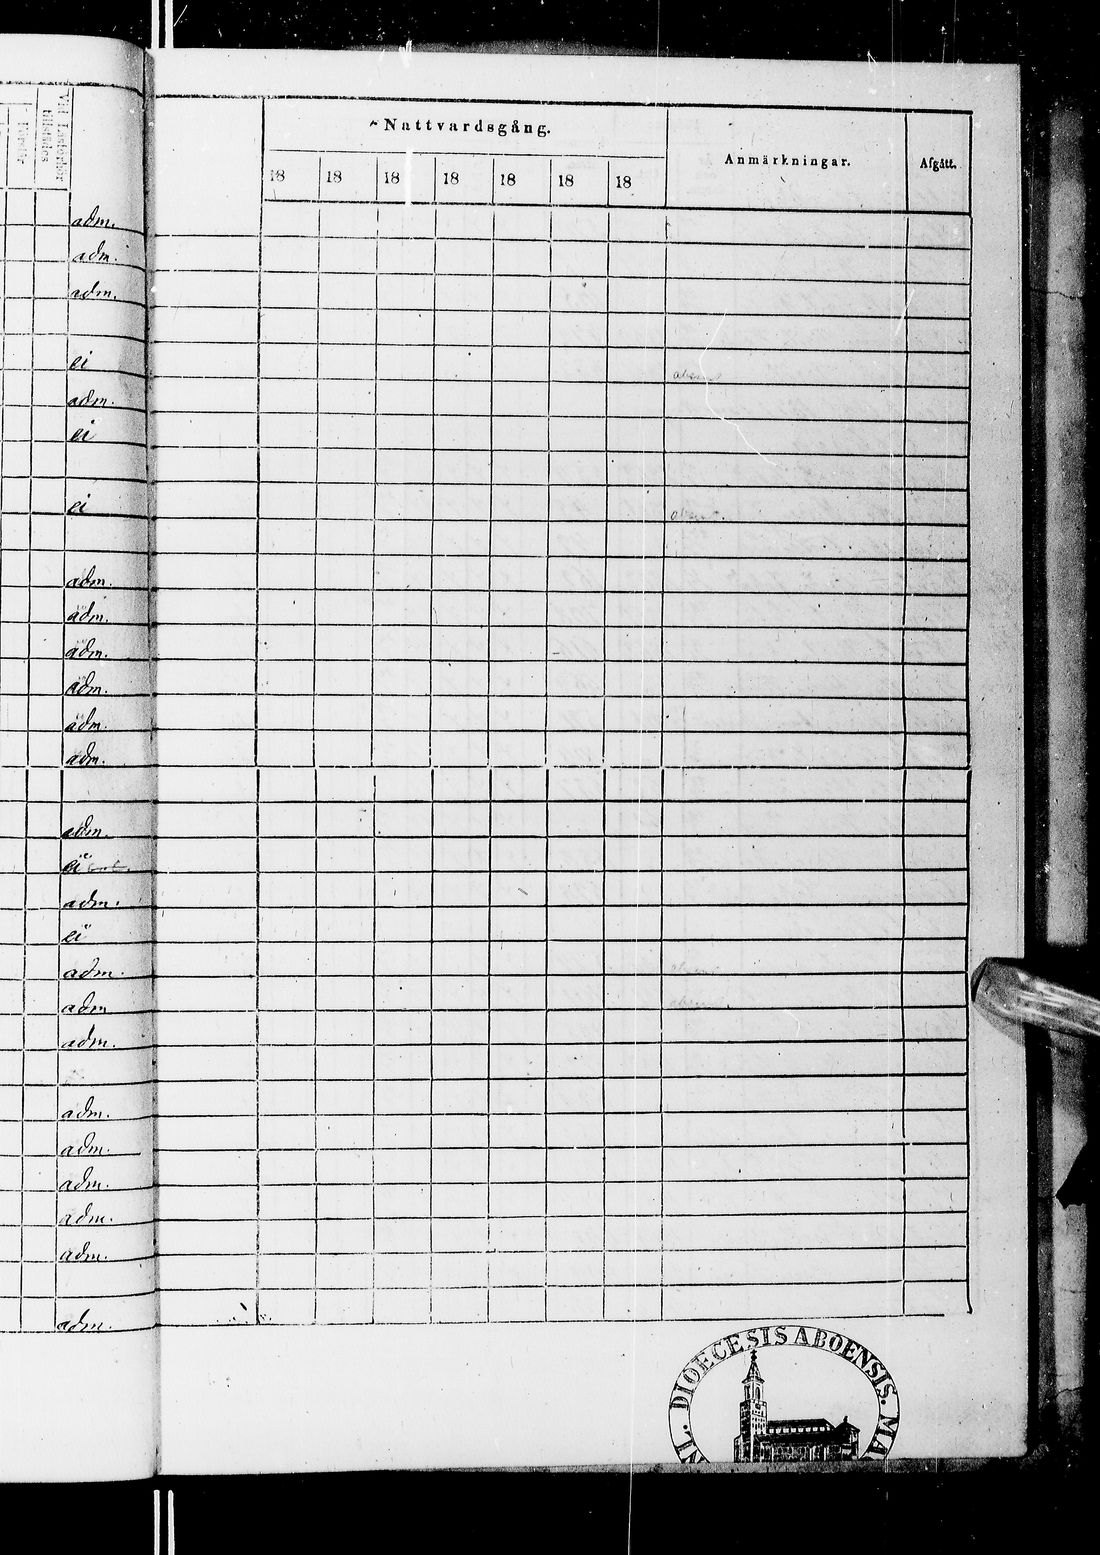 Vid Läsförhör tillstädes
Förstår
Nattvardsgång.
Anmärkningar.
Afgått.
18 18 18 18 18 18 18
adm.
adm.
adm.
ei
adm.
ei
ei
adm.
adm.
adm.
adm.
adm.
adm.
adm.
ei
adm.
ei
adm.
adm
adm.
adm.
adm.
adm.
adm.
adm.
adm.
DIOECESIS ABOENSIS. MA